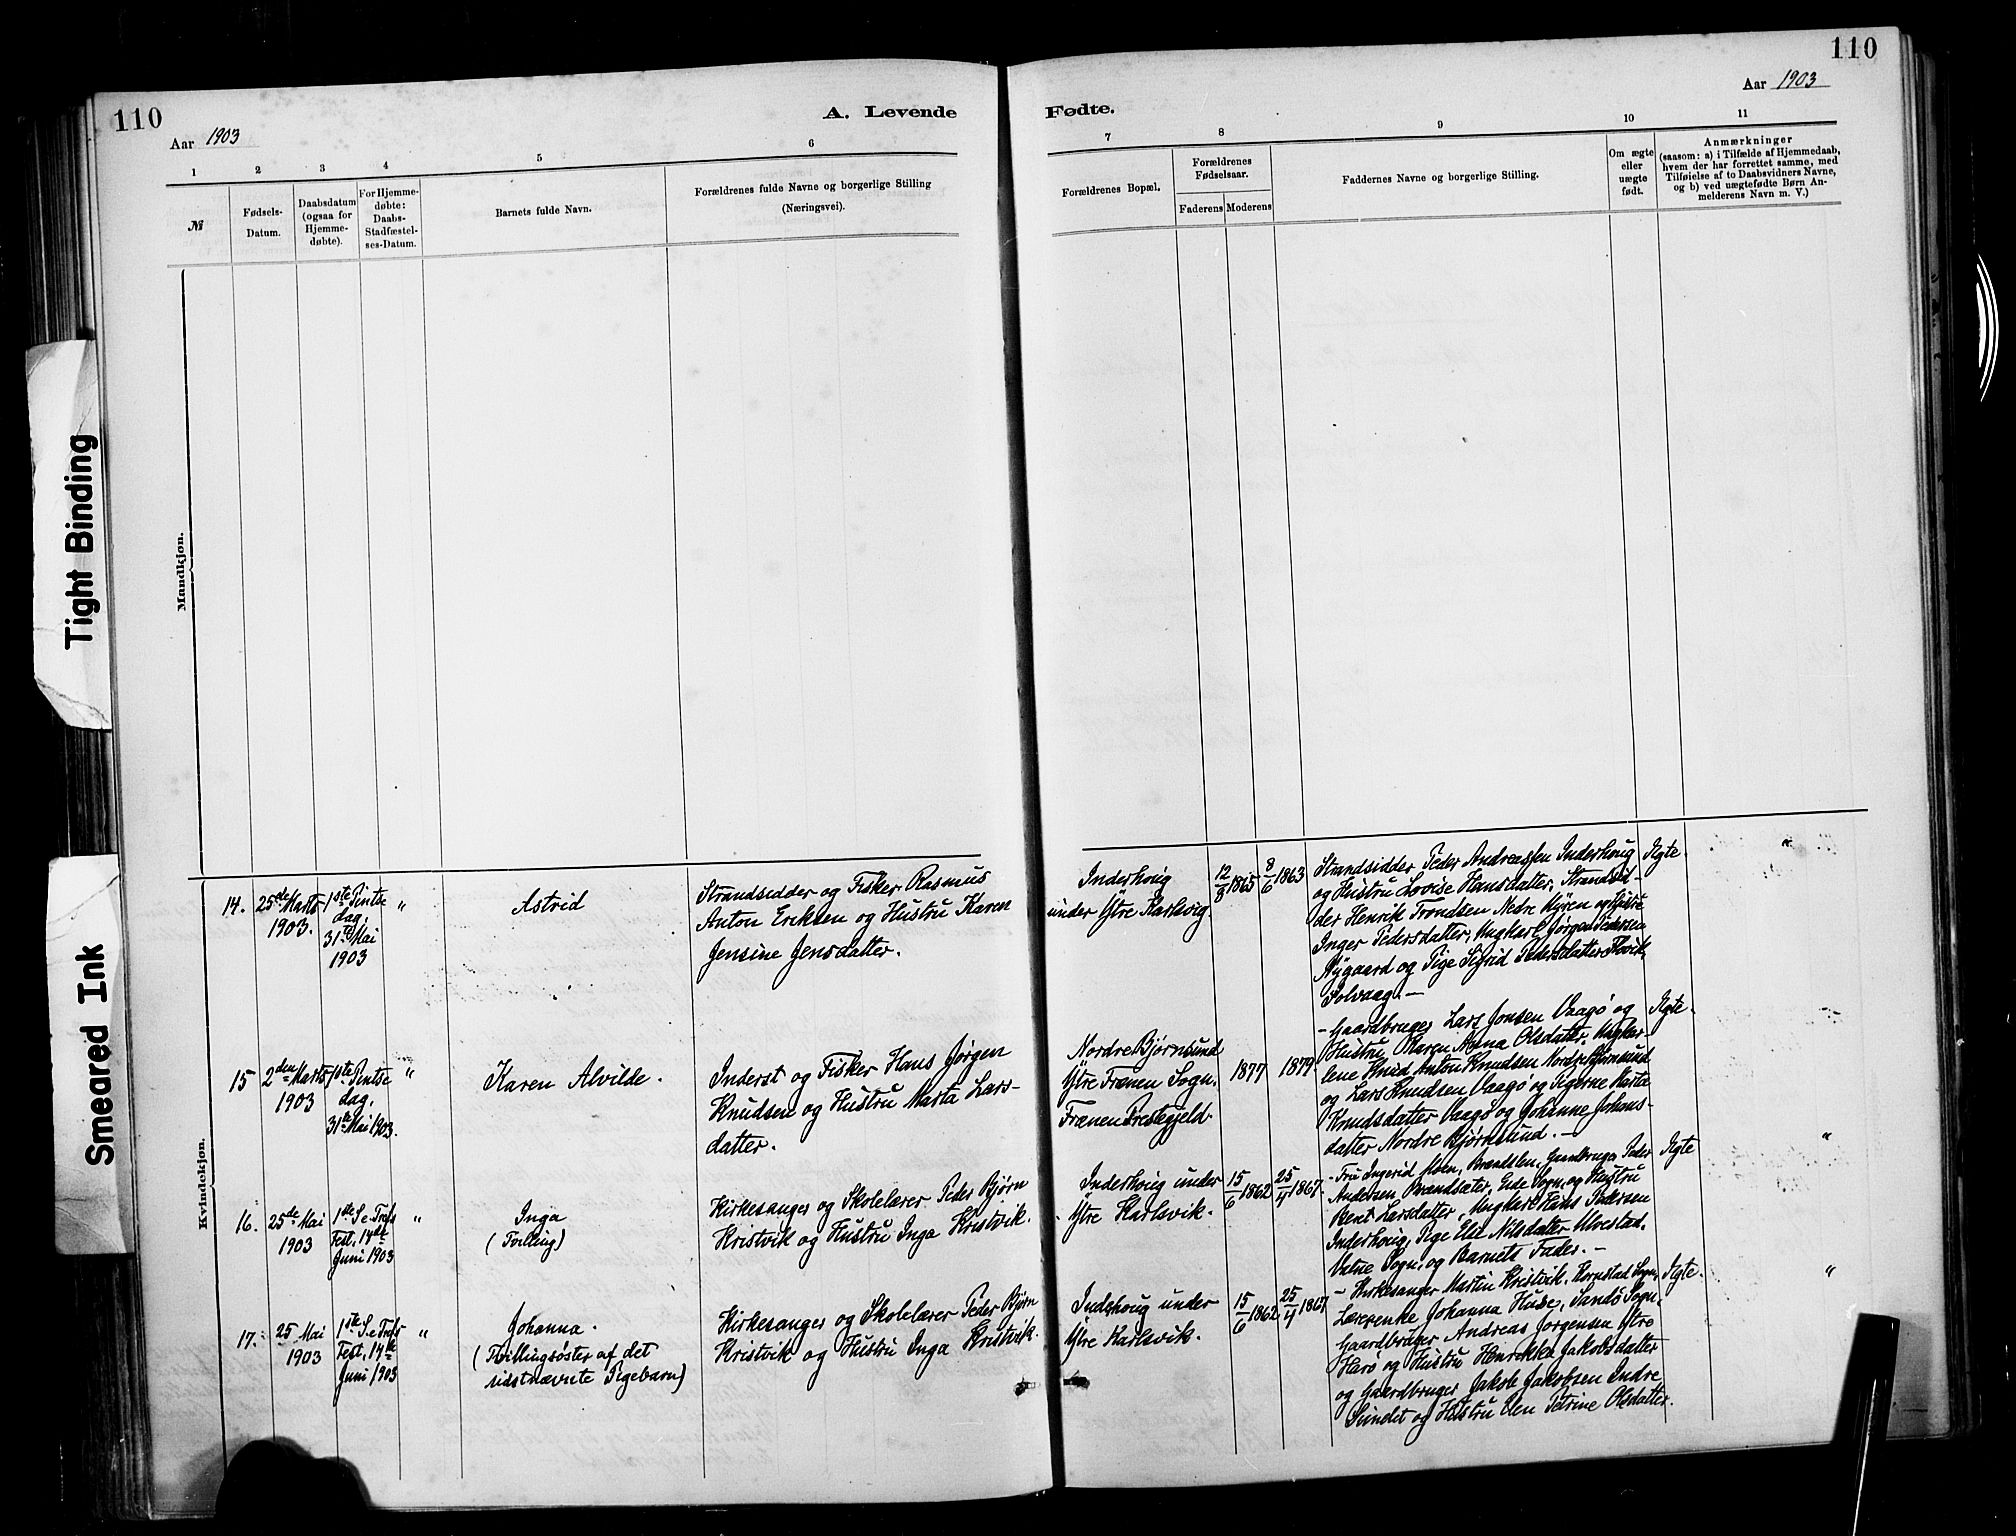 110
Aar 1903
A. Levende
Fødte.
110
Aar 1903
1
2
3
4
5
6
7
8
9
10
11
№
Fødsels-
Datum.
Daabsdatum
(ogsaa for
Hjemme-
døbte).
For Hjemme-
døbte:
Daabs-
Stadfæstel-
ses-Datum.
Barnets fulde Navn.
Forældrenes fulde Navne og borgerlige Stilling
(Næringsvei).
Forældrenes Bopæl.
Forældrenes
Fødselsaar.
Faderens
Moderens
Faddernes Navne og borgerlige Stilling.
Om ægte
eller
uægte
født.
Anmærkninger
(saasom: a) i Tilfælde af Hjemmedaab,
hvem der har forrettet samme, med
Tilføielse af to Daabsvidners Navne,
og b) ved uægtefødte Børn An-
melderens Navn m. V.)
Mandkjøn.
Kvindekjøn.
Tight Binding
Smeared Ink
14.
25de Marts
1903.
1ste Pintse
dag.
31te Mai
1903
"
Astrid
Strandsidder og Fisker Rasmus
Anton Eriksen og Hustru Karen
Jensine Jensdatter.
Inderhoug
under Ytre Karlsvig
12/8 1865
8/6 1863
Strandsidder Peder Andreassen Inderhoug
og Hustru Lovise Hansdatter, Strandsid-
der Henrik Trondsen Nedre og Hustru
Inger Pedersdatter, Ungkarl Jørgen Pedersen
Nygaard og Pige Sigrid Pedersdatter
Solvaag. —
Ægte.
"
15
2den Marts
1903
1ste Pintse
dag.
31te Mai 1903.
"
Karen Alvilde.
Inderst og Fisker Hans Jørgen
Knudsen og Hustru Marta Lars-
datter.
Nordre Bjørnsund
Ytre Frænen Sogn.
Frænen Prestegjeld
1877
1879
- Gaardbruger Lars Jonsen Vaagø og
Hustru Karen Anna Olsdatter, Ungkar-
lene Knud Anton Knudsen Nordre Bjørnsund
og Lars Knudsen Vaagø og Pigerne Marta
Knudsdatter Vaagø og Johanne Johans-
datter Nordre Bjørnsund. —
Ægte.
"
16.
25de Mai
1903
1ste S. e. Trefs
Fest, 14de
Juni 1903
"
Inga
(Tvilling)
Kirkesanger og Skolelærer Peder Bjørn
Kristvik og Hustru Inga Kristvik.
Inderhoug under
Ytre Karlsvik.
15/6 1862
25/4 1867.
- Fru Ingerid Moen, Gaardbruger Peder
Andersen Brandsæter, Eide Sogn, og Hustru
Berit Larsdatter, Ungkarl Hans Pedersen
Inderhoug, Pige Eli Nilsdatter Ulvestad,
Vatne Sogn, og Barnets Fader. —
Ægte
"
17.
25 Mai
1903
1ste S. e. Trefs
Fest, 14de
Juni 1903
"
Johanna.
(Tvillingsøster af det
sidstnævnte Pigebarn)
Kirkesanger og Skolelærer Peder Bjørn
Kristvik og Hustru Inga Kristvik.
Inderhoug under
Ytre Karlsvik.
15/6 1862
25/4 1867
- Kirkesanger Martin Kristvik, Kornstad Sogn,
Lærerenke Johanna Huse, Sandø Sogn,
Gaardbruger Andreas Jørgensen Ytre
Harø og Hustru Henrikke Jakobsdatter
og Gaardbruger Jakob Jakobsen Indre
Sundet og Hustru Elen Petrine Olsdatter.
Ægte.
"